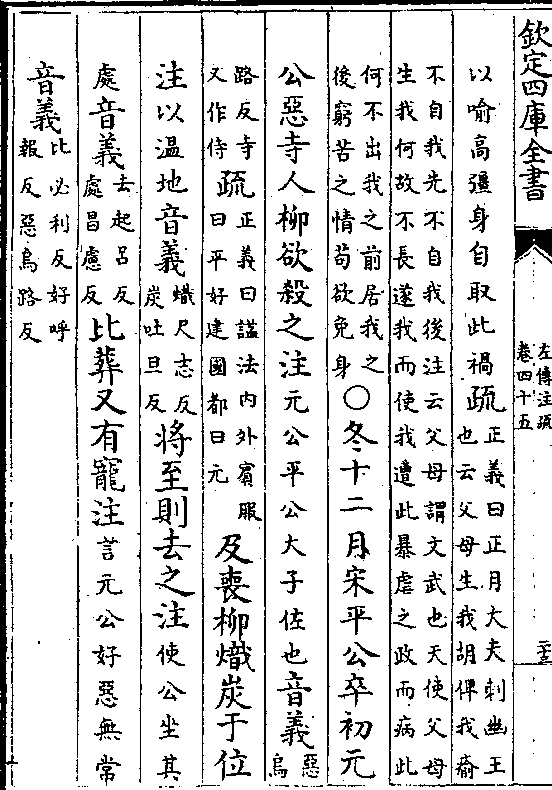 欽定四庫全書
左傳注疏
卷四十五
以喻高彊身自取此禍疏正義曰正月大夫刺幽王
也云父母生我胡俾我瘉
不自我先不自我後注云父母謂文武也天使父母
生我何故不長遂我而使我遭此暴虐之政而病此
何不出我之前居我之
後窮苦之情苟欲免身〇冬十二月宋平公卒初元
公惡寺人柳欲殺之注元公平公大子佐也音義惡烏
路反寺
又作侍疏正義曰謚法內外賓服
曰平好建國都曰元及喪柳熾炭于位
注以温地音義熾尺志反
炭吐旦反將至則去之注使公坐其
處音義去起呂反
處昌慮反比葬又有寵注言元公好惡無常
音義比必利反好呼
報反惡烏路反